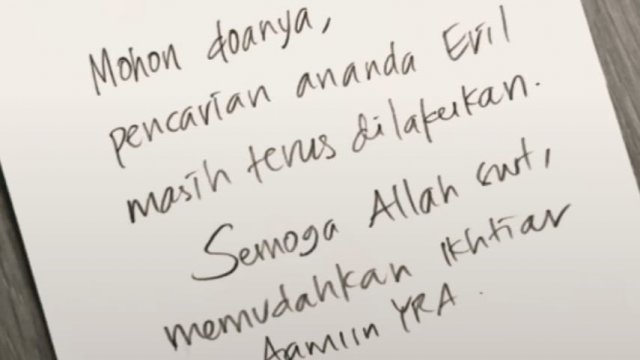 Mohon doanya,
pencarian ananda Eril
masih terus dilakukan.
Semoga Allah swt,
memudahkan ikhtiar
Aamiin YRA.